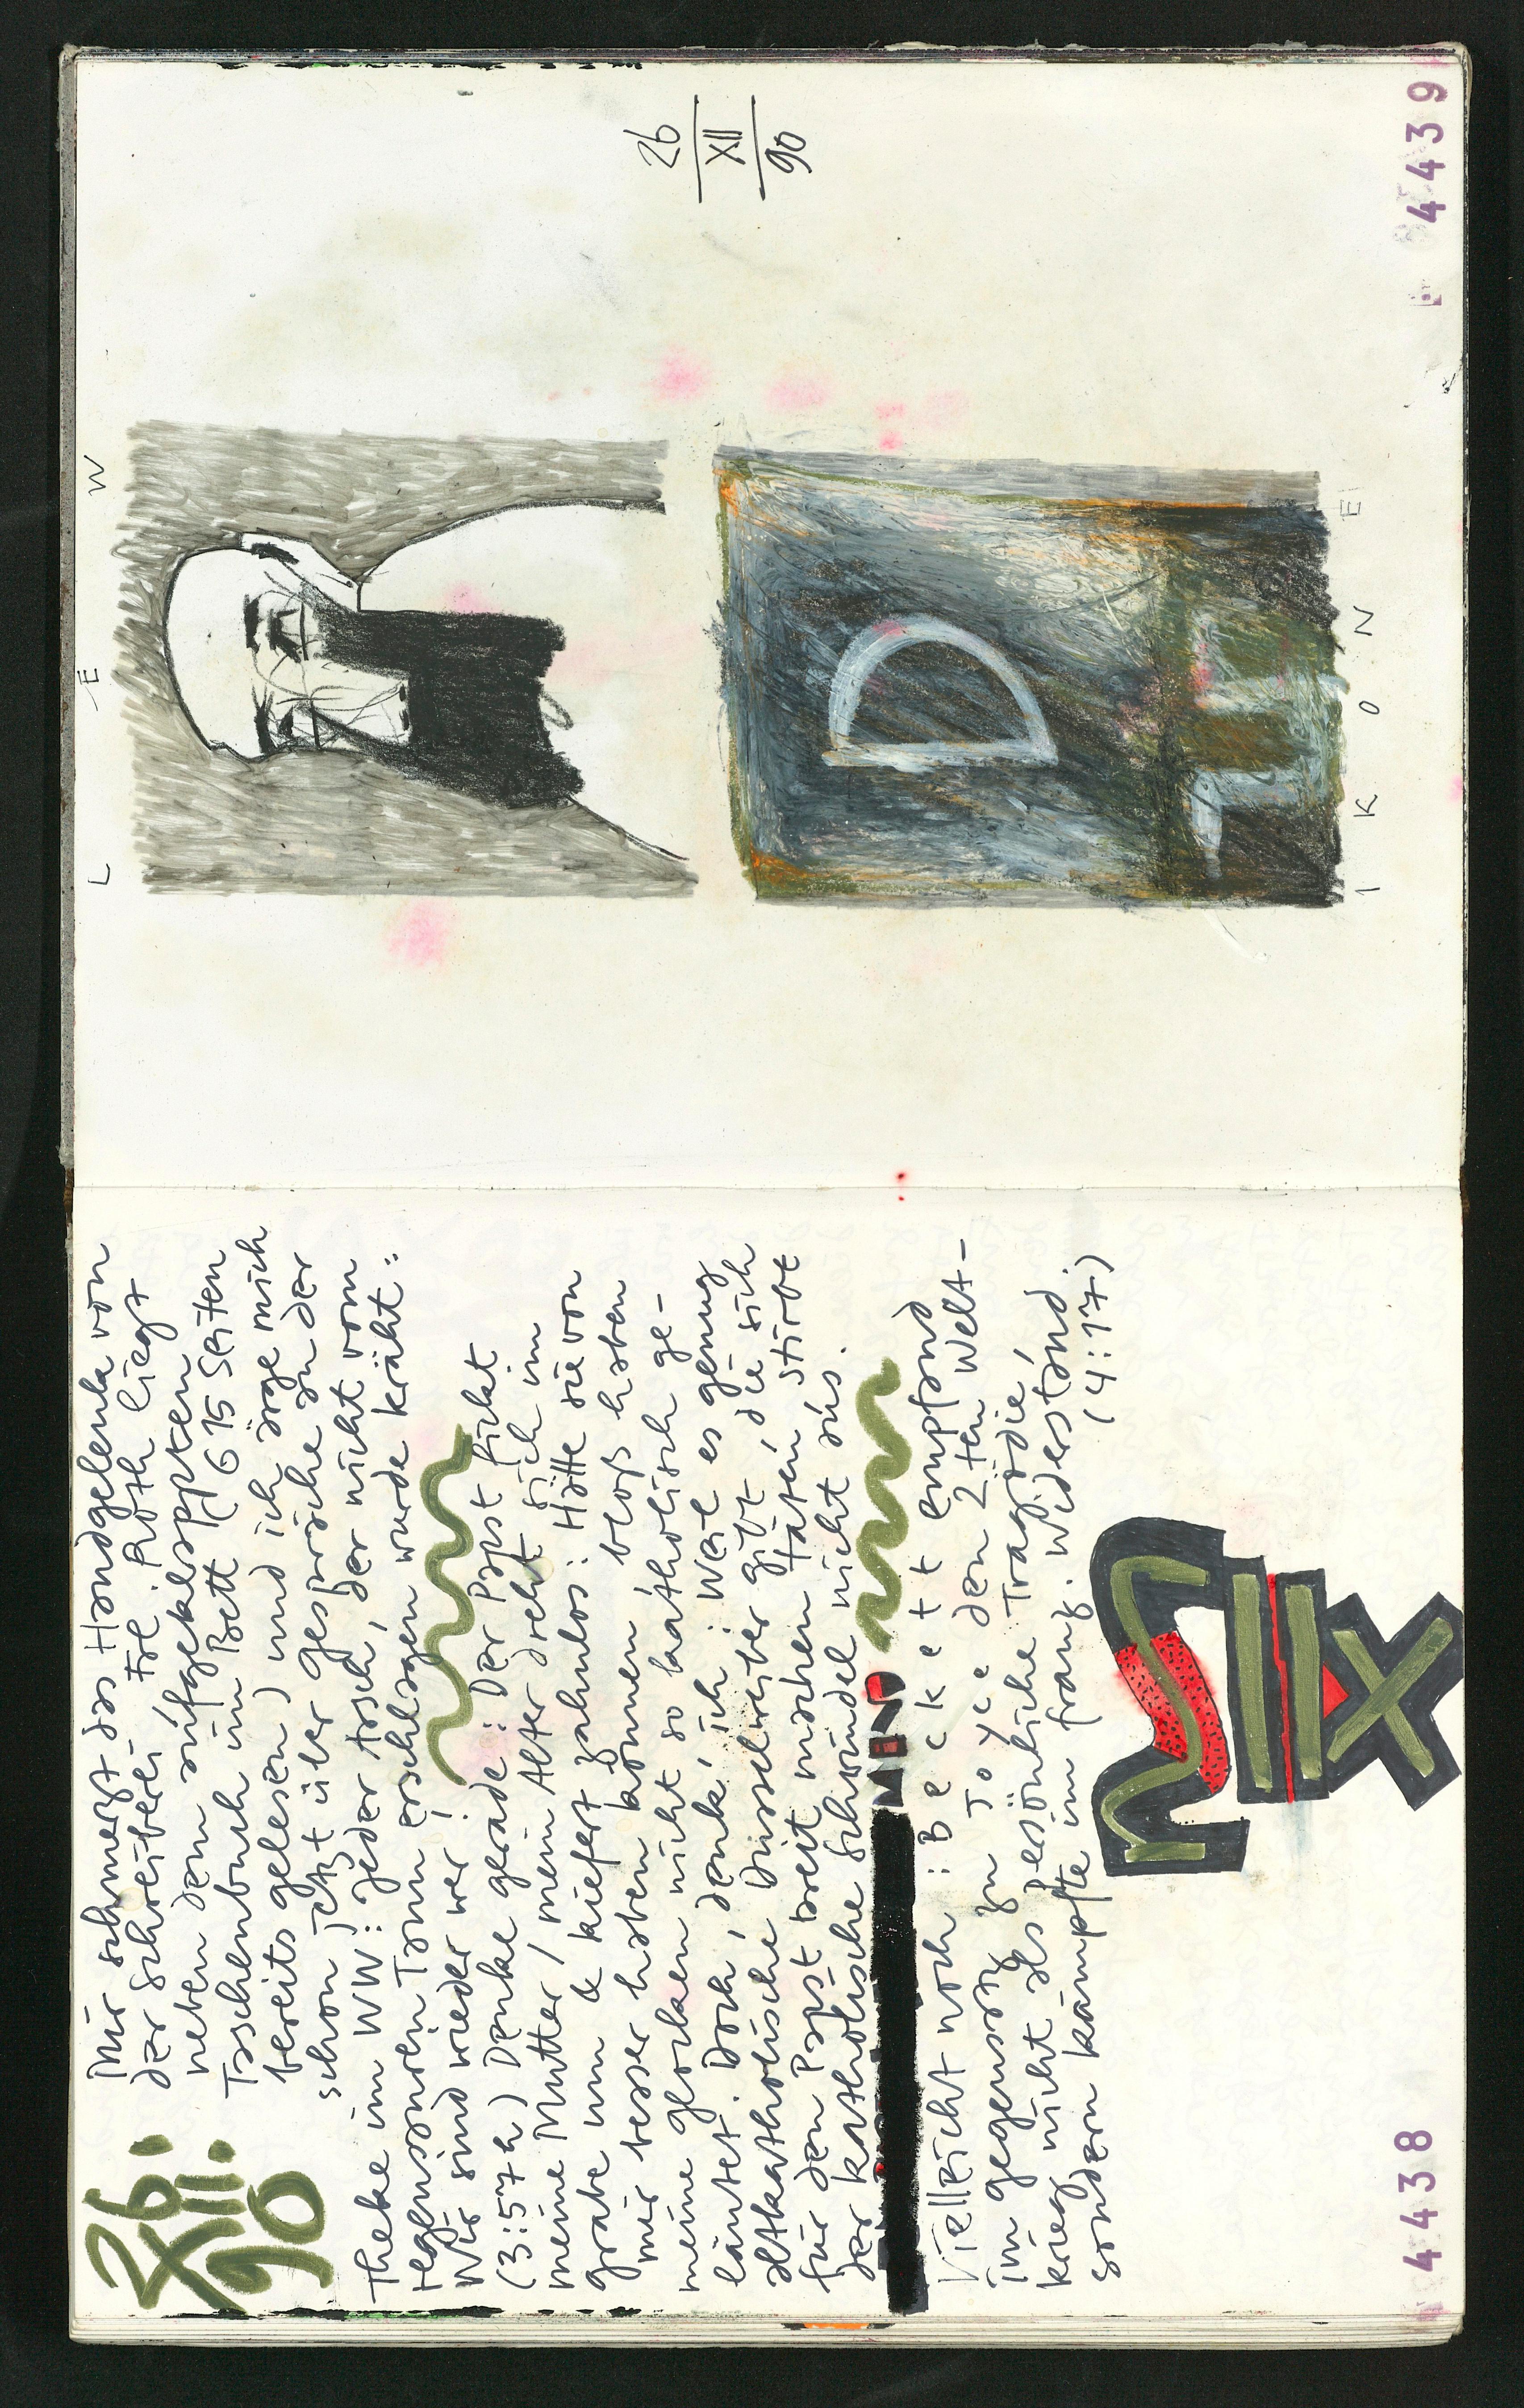 26.
XII.
90
Mir schmerzt das Handgelenk von
der schreiberei. Roth liegt
neben dem aufgeklappten
Taschenbuch im Bett (615 Seiten
bereits gelesen) und ich ärge mich
schon jetzt über gespräche an der
Theke im WW: jeder Arsch, der nicht vom
regensauren Tann erschlagen wurde kräht:
Wir sind wieder wer!
(3:57h) Denke gerade: Der Papst fickt
meine Mutter / mein Alter dreht sich im
grabe um & kiefert zahnlos: Hätte sie von
mir besser haben können, bloß haben
meine glocken nicht so katholisch ge-
läutet. Doch, denk' ich: Weil es genug
altkatholische gibt, die sich
für den Papst breit machen täten, stirbt
der katholische schwindel nicht aus.
Vielleicht noch: Beckett empfand
im gegensatz zu Joyce den 2ten Welt-
krieg nicht als persönliche Tragödie,
sondern kämpfte im franz. widerstand.
(4:17)
XII
4438
L E W
26
XII
90
D
I K O N E
4439